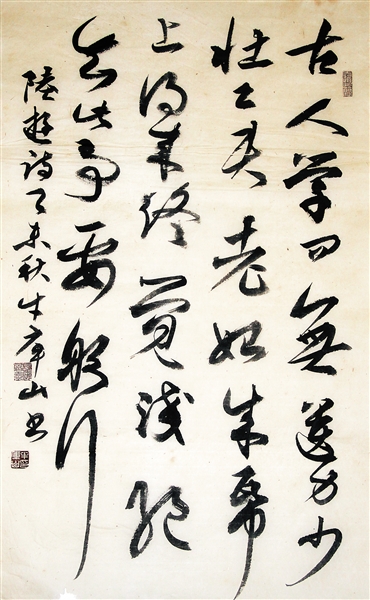 古人学问無遗力少
壮工夫老始成帋
上得来终觉浅绝
知此事要躬行
陸游诗丁未秋牛山书